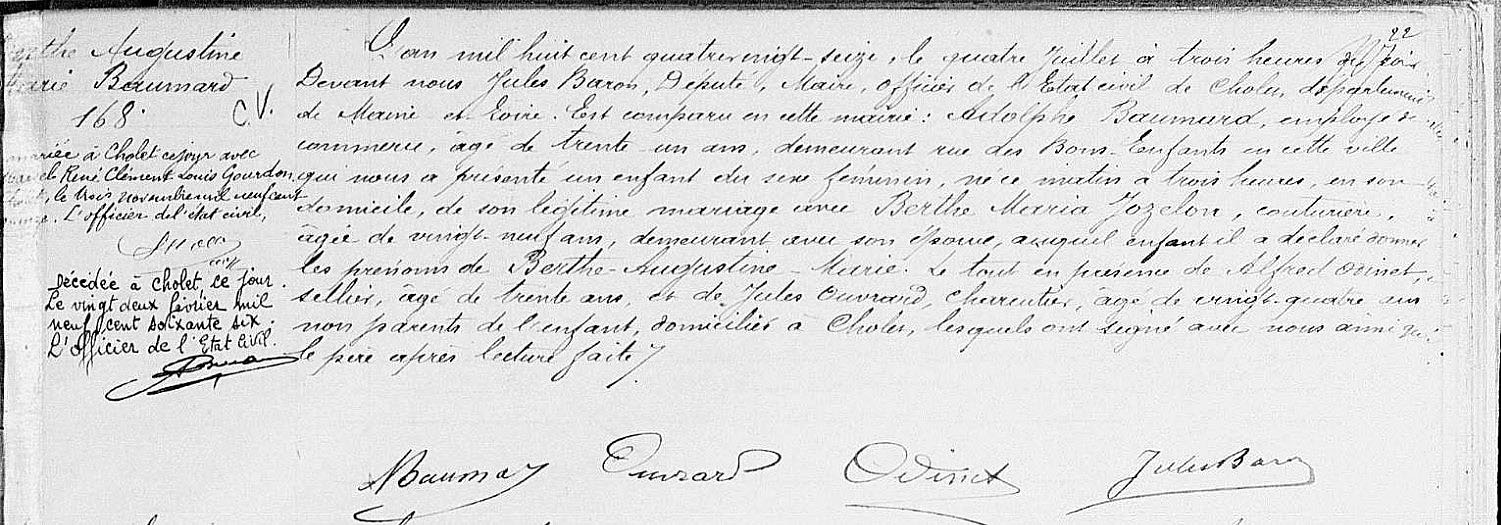 22
Berthe Augustine
Marie Baumard
168.
C.V.
mariée à Cholet ce jour avec
René Clément Louis Gourdon
le trois novembre mil neuf cent
L'officier de l'état civil,
Décédée à Cholet, ce jour.
Le vingt deux février mil
neuf cent soixante six.
L'Officier de l'Etat Civil.
L'an mil huit cent quatre vingt-seize, le quatre Juillet à trois heures du soir
Devant nous Jules Baron, Député, Maire, officier de l'Etat civil de Cholet, département
de Maine et Loire. Est comparu en cette mairie: Adolphe Baumard, employé de
commerce, âgé de trente-un ans, demeurant rue des Bons-Enfants en cette ville
qui nous a présenté un enfant du sexe féminin, né ce matin à trois heures, en son
domicile, de son légitime mariage avec Berthe Maria Jozelon, couturière,
âgée de vingt-neuf ans, demeurant avec son épouse, auquel enfant il a déclaré donner
les prénoms de Berthe-Augustine-Marie. Le tout en présence de Alfred Odinet,
sellier, âgé de trente ans, et de Jules Ouvrard, charentier, âgé de vingt-quatre ans
non parents de l'enfant, domiciliés à Cholet, lesquels ont signé avec nous ainsi que
le père après lecture faite
ABaumard Ouvrard Odinet Jules Baron